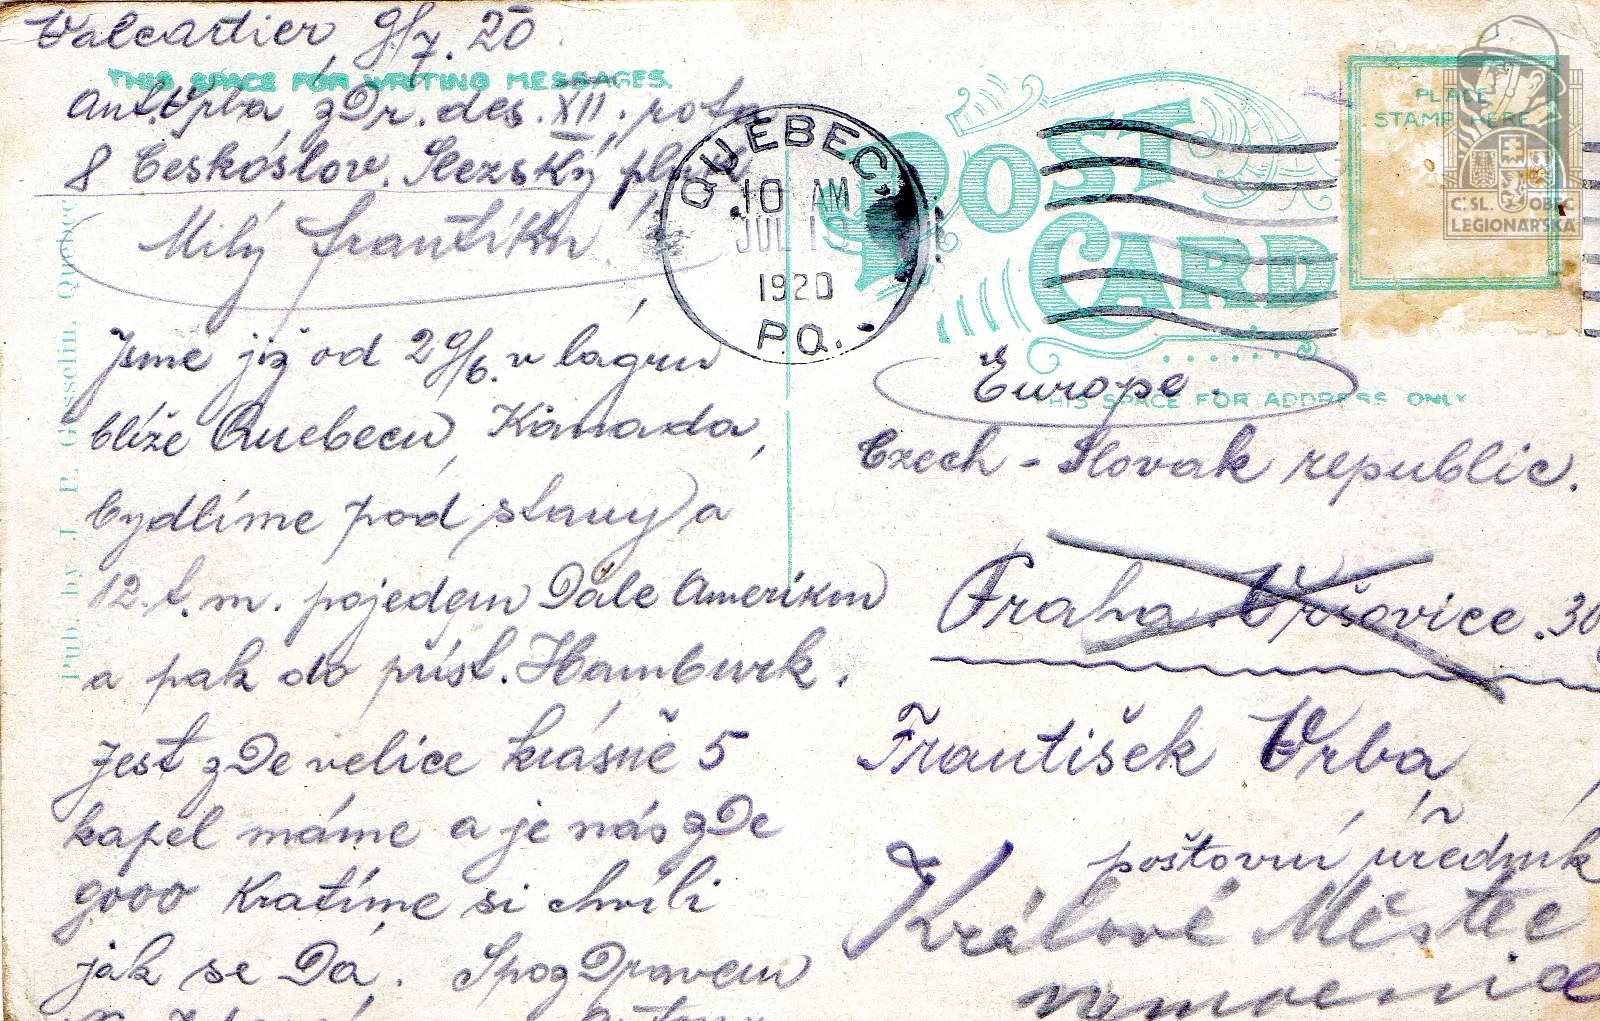 Valcartier, 9/7. 20
THIS SPACE FOR WRITING MESSAGES.
Ant. Vrba, zDr. des. XII. rota
8 Českoslov. Slezský pluk
Milý Frantíku
Jsme již od 29/6. v lágru
blíže Quebecu, Kánada,
bydlíme pod stany a
12. t. m. pojedem Dále Amerikou
a pak do príst. Hamburk.
Jest zDe velice krásně 5
kapel máme a je nás zDe
9000 Kratíme si chvíli
jak se Dá. S pozDravem
Pub. by J. P. Gosselin, Quebec
QUEBEC
10 AM
JUL
1920
P.Q.
POST CARD
PLACE
STAMP HERE
Č.SL. OBEC
LEGIONÁŘSKÁ
Europe.
THIS SPACE FOR ADDRESS ONLY
Czech - Slovak republic.
Praha Vršovice. 30
František Vrba
poštovní úředník
Králové Městec
nemocnice